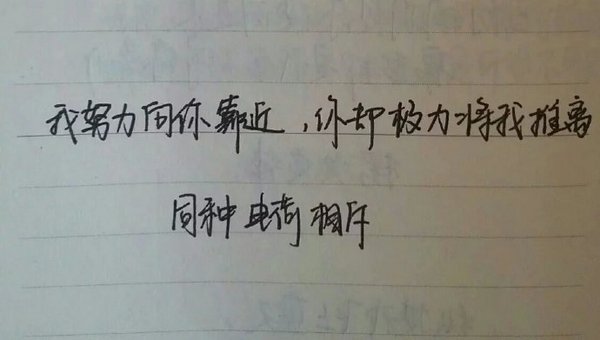 我努力向你靠近，你却极力将我推离
同种电荷相斥